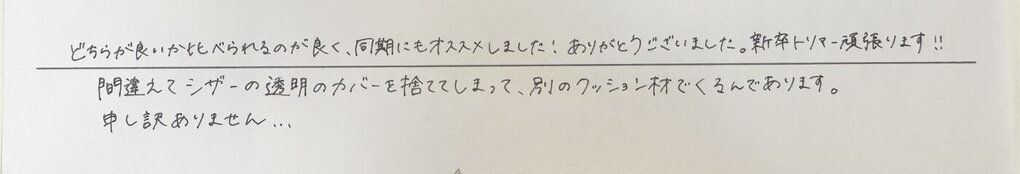 どちらが良いか比べられるのが良く、同期にもオススメしました！ありがとうございました。新卒トリマー頑張ります!!
間違えてシザーの透明のカバーを捨ててしまって、別のクッション材でくるんであります。
申し訳ありません...